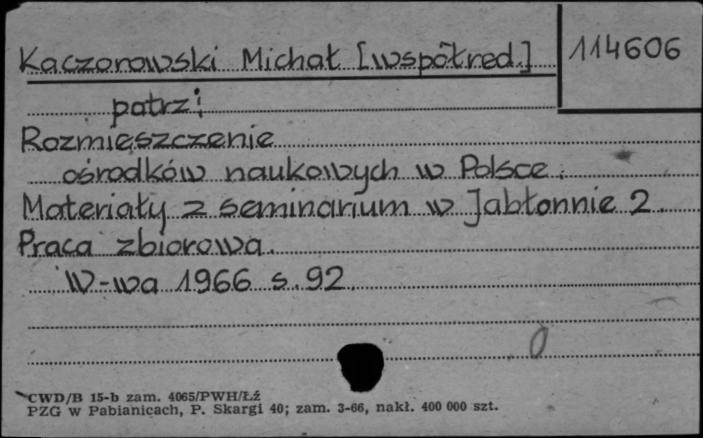 Kaczorowski Michał [współred.]
114606
patrz:
Rozmieszczenie
ośrodków naukowych w Polsce.
Materiały z seminarium w Jabłonnie 2.
Praca zbiorowa.
W-wa 1966 s. 92.
0
CWD/B 15-b zam. 4065/PWH/Łź
PZG w Pabianicach, P. Skargi 40; zam. 3-66, nakł. 400 000 szt.